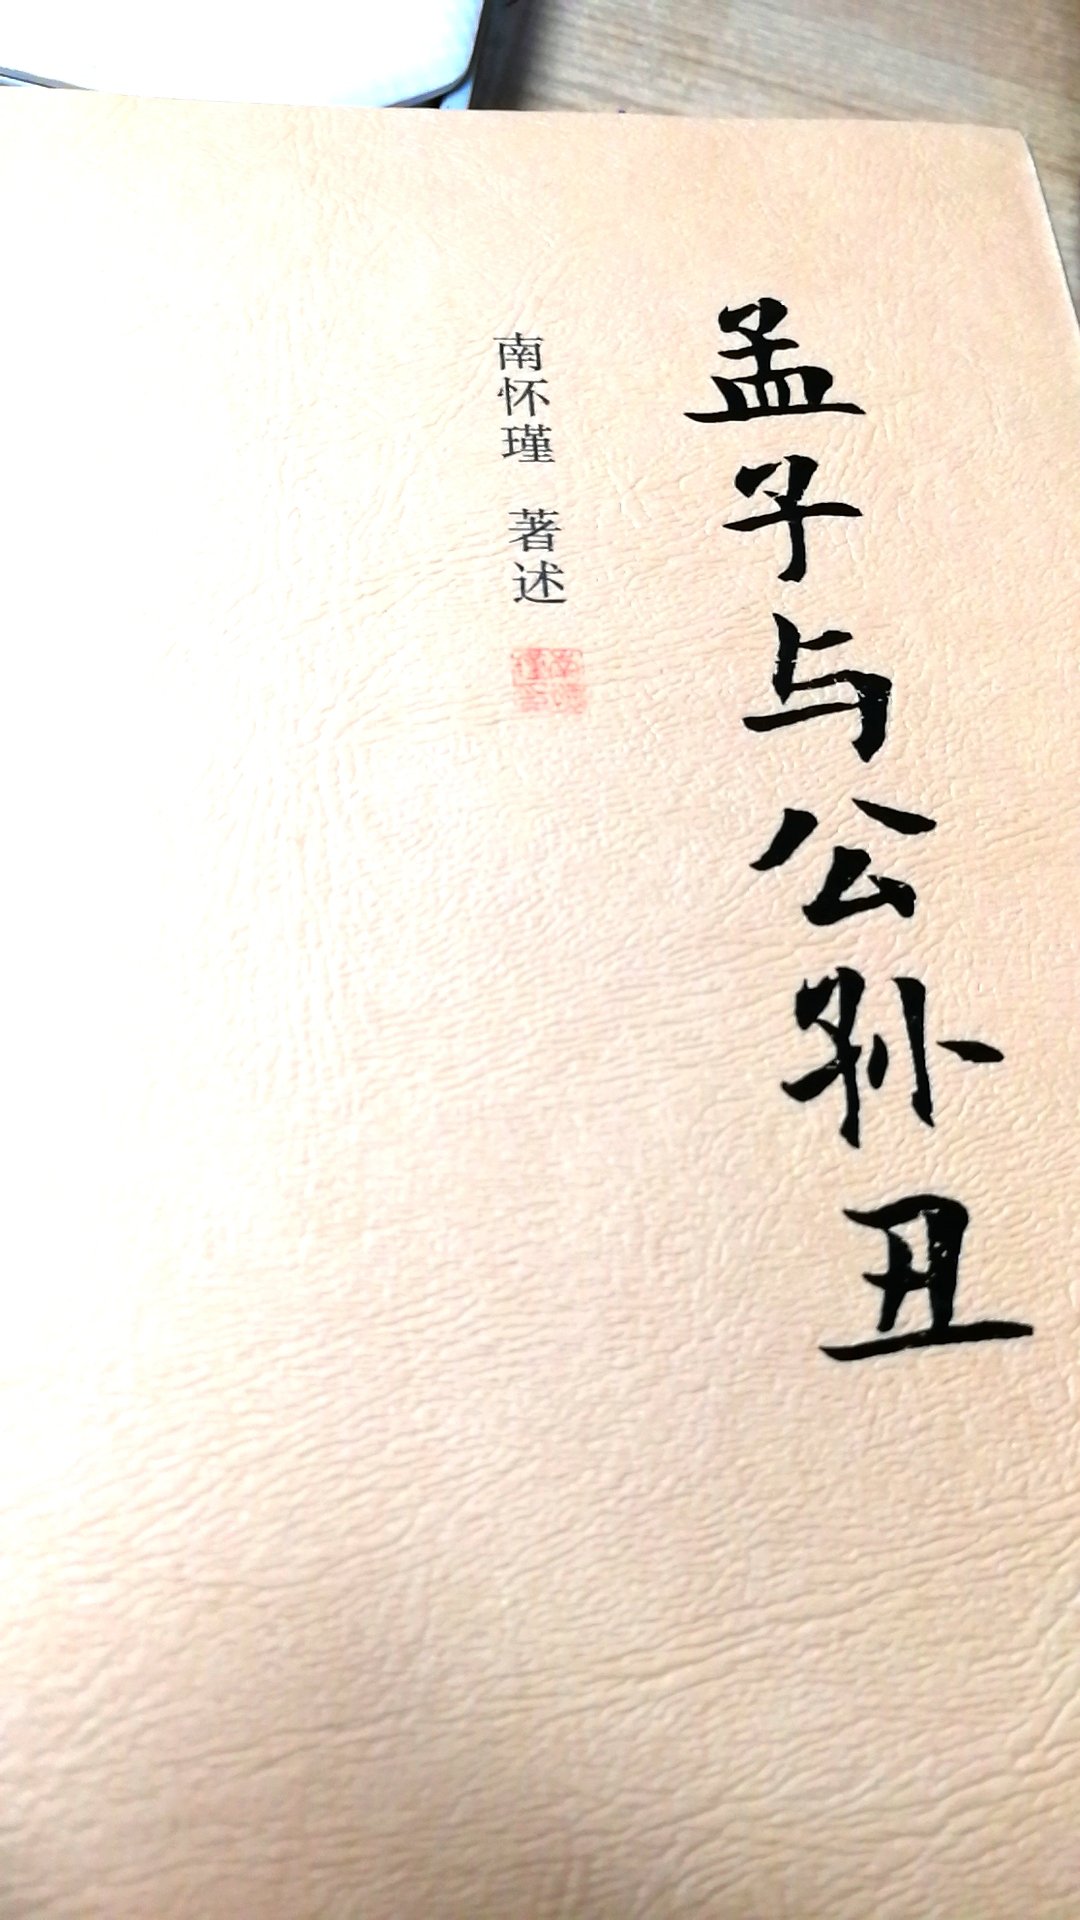 孟子与公孙丑
南怀瑾 著述